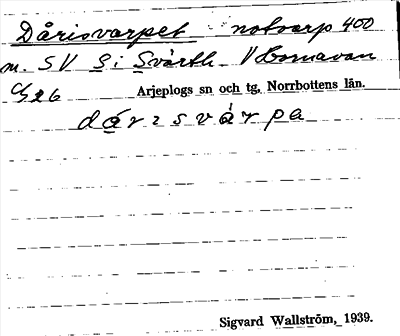 Dårisvarpet notvarp 400
m. SV S: i Svärth. V Hornavan
Arjeplogs sn och tg, Norrbottens län.
dárisvárpa
Sigvard Wallström, 1939.